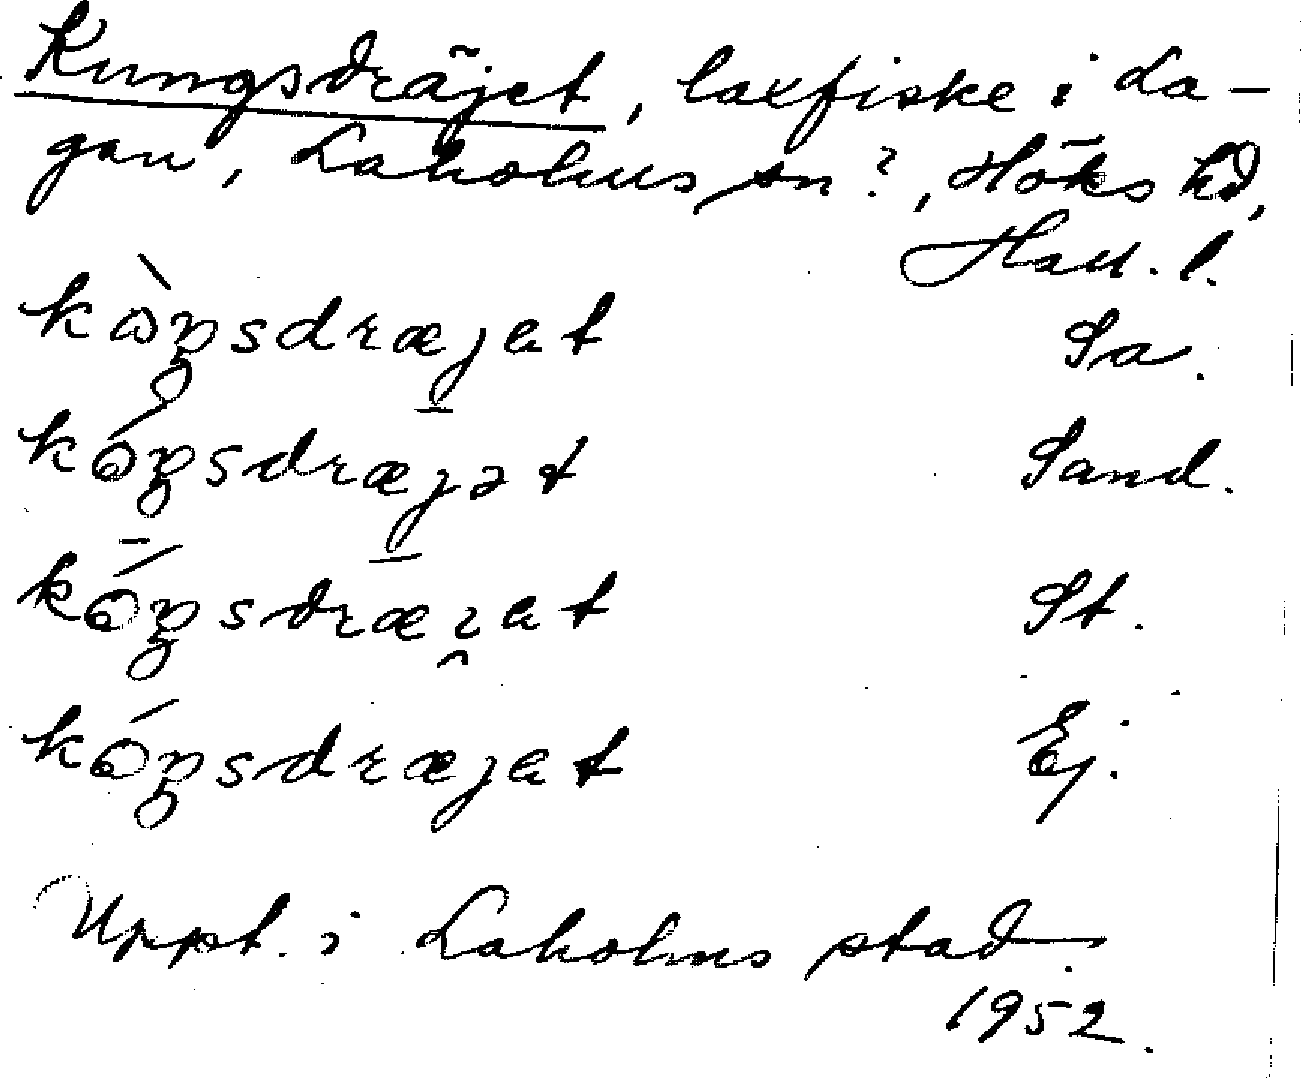 Kungsdräjet, laxfiske i La-
gan, Laholms sn?, Höks hd,
Hall. l.
kòŋsdræjet Sa.
kóŋsdræjət Sand.
kóŋsdræjet St.
kóŋsdræjet Ej.
Uppt. i Laholms stad.
1952.